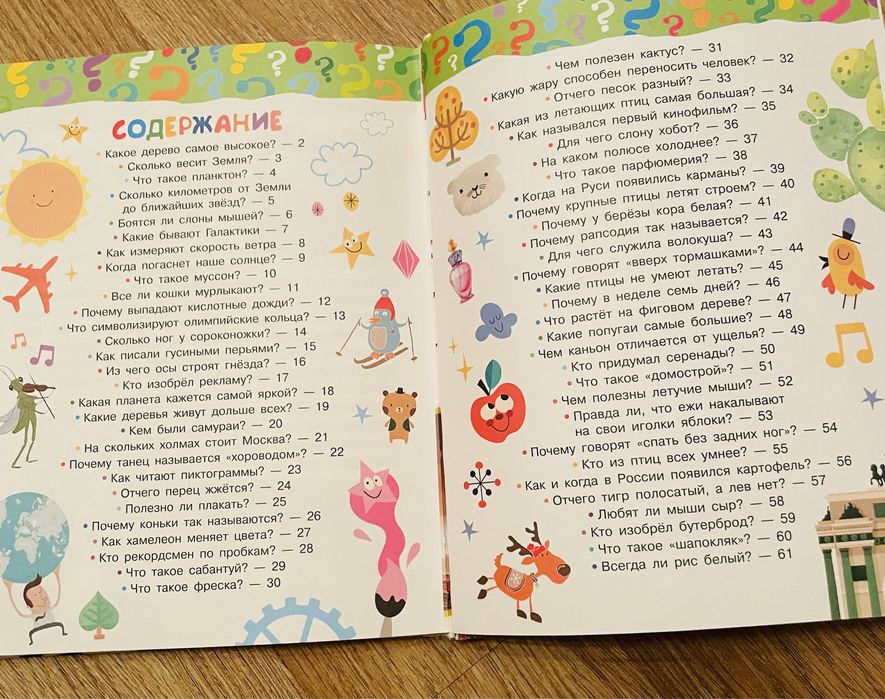 СОДЕРЖАНИЕ
Какое дерево самое высокое? — 2
Сколько весит Земля? — 3
Что такое планктон? — 4
Сколько километров от Земли
до ближайших звёзд? — 5
Боятся ли слоны мышей? — 6
Какие бывают Галактики — 7
Как измеряют скорость ветра — 8
Когда погаснет наше солнце? — 9
Что такое муссон? — 10
Все ли кошки мурлыкают? — 11
Почему выпадают кислотные дожди? — 12
Что символизируют олимпийские кольца? — 13
Сколько ног у сороконожки? — 14
Как писали гусиными перьями? — 15
Из чего осы строят гнёзда? — 16
Кто изобрёл рекламу? — 17
Какая планета кажется самой яркой? — 18
Какие деревья живут дольше всех? — 19
Кем были самураи? — 20
На скольких холмах стоит Москва? — 21
Почему танец называется «хороводом»? — 22
Как читают пиктограммы? — 23
Отчего перец жжётся? — 24
Полезно ли плакать? — 25
Почему коньки так называются? — 26
Как хамелеон меняет цвета? — 27
Кто рекордсмен по пробкам? — 28
Что такое сабантуй? — 29
Что такое фреска? — 30
Чем полезен кактус? — 31
Какую жару способен переносить человек? — 32
Отчего песок разный? — 33
Какая из летающих птиц самая большая? — 34
Как назывался первый кинофильм? — 35
Для чего слону хобот? — 36
На каком полюсе холоднее? — 37
Что такое парфюмерия? — 38
Когда на Руси появились карманы? — 39
Почему крупные птицы летят строем? — 40
Почему у берёзы кора белая? — 41
Почему рапсодия так называется? — 42
Для чего служила волокуша? — 43
Почему говорят «вверх тормашками»? — 44
Какие птицы не умеют летать? — 45
Почему в неделе семь дней? — 46
Что растёт на фиговом дереве? — 47
Какие попугаи самые большие? — 48
Чем каньон отличается от ущелья? — 49
Кто придумал серенады? — 50
Что такое «домострой»? — 51
Чем полезны летучие мыши? — 52
Правда ли, что ежи накалывают
на свои иголки яблоки? — 53
Почему говорят «спать без задних ног»? — 54
Кто из птиц всех умнее? — 55
Как и когда в России появился картофель? — 56
Отчего тигр полосатый, а лев нет? — 57
Любят ли мыши сыр? — 58
Кто изобрёл бутерброд? — 59
Что такое «шапокляк»? — 60
Всегда ли рис белый? — 61